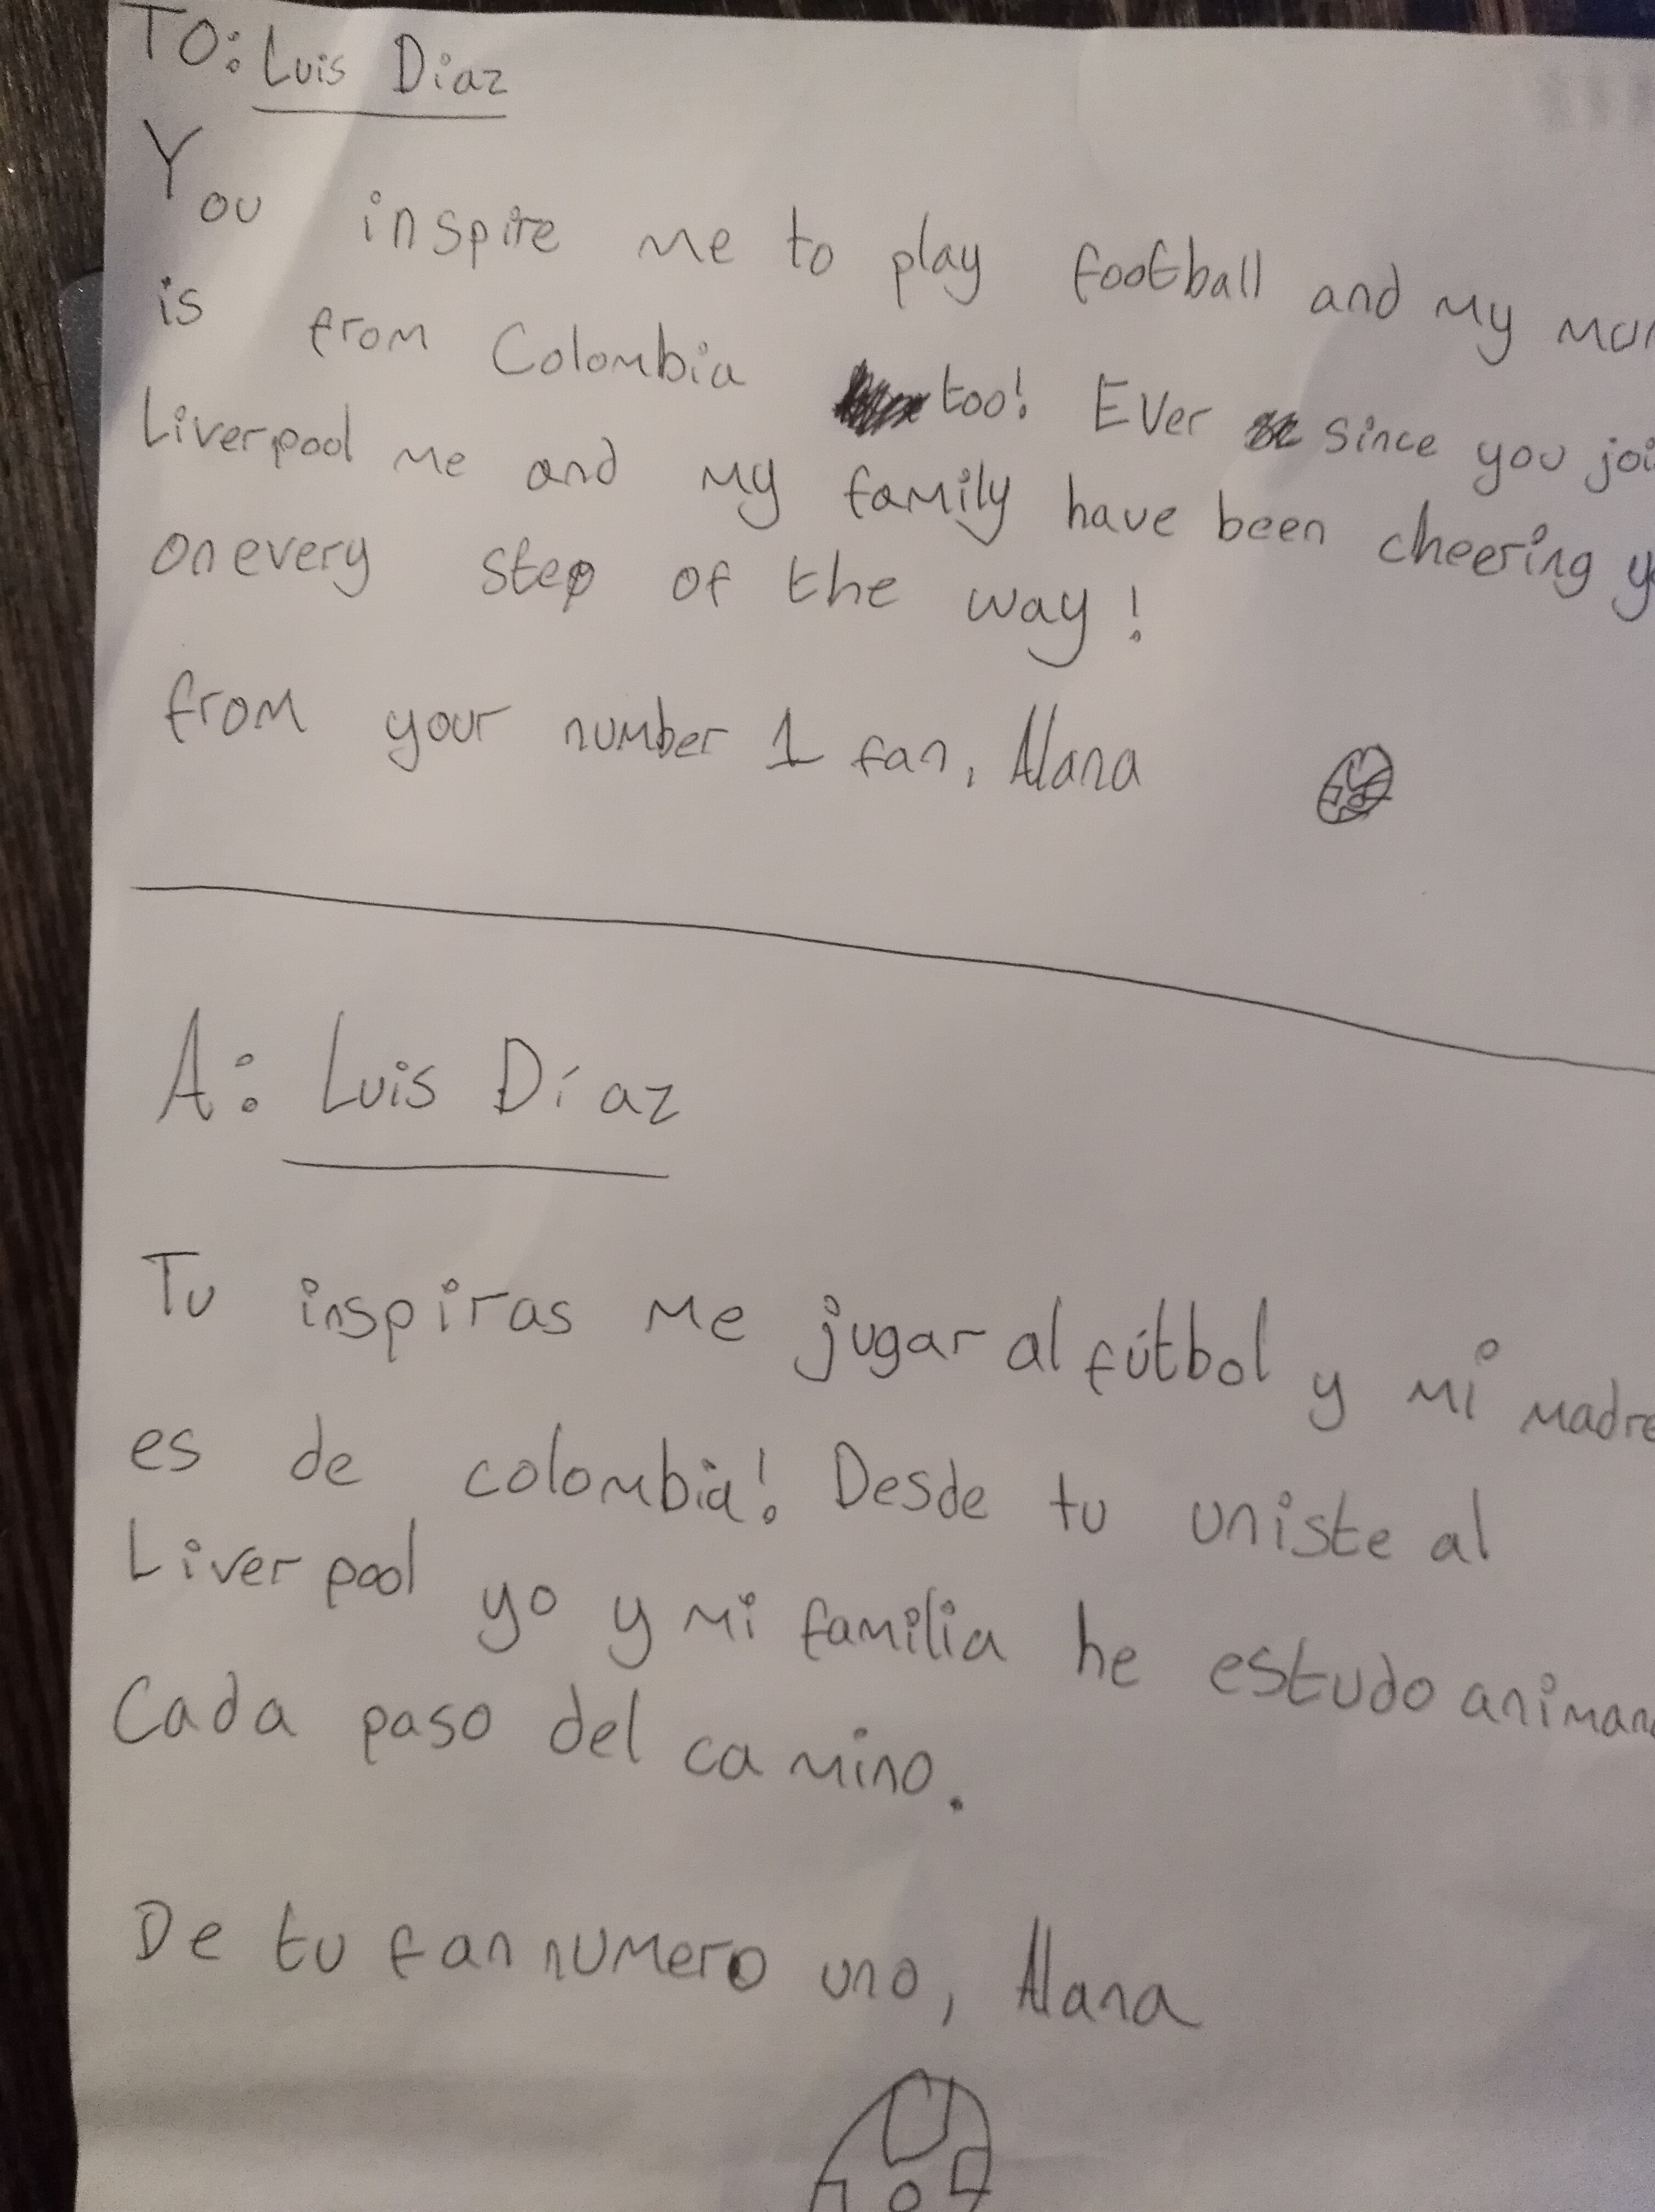 TO: Luis Diaz
You inspire me to play football and my
is from Colombia too! Ever since you
Liverpool me and my family have been cheering
on every step of the way!
from your number 1 fan, Alana
A: Luis Díaz
Tu inspiras me jugar al fútbol y mi madre
es de colombia! Desde tu uniste al
Liverpool yo y mi familia he estudo
Cada paso del camino.
De tu fan numero uno, Alana